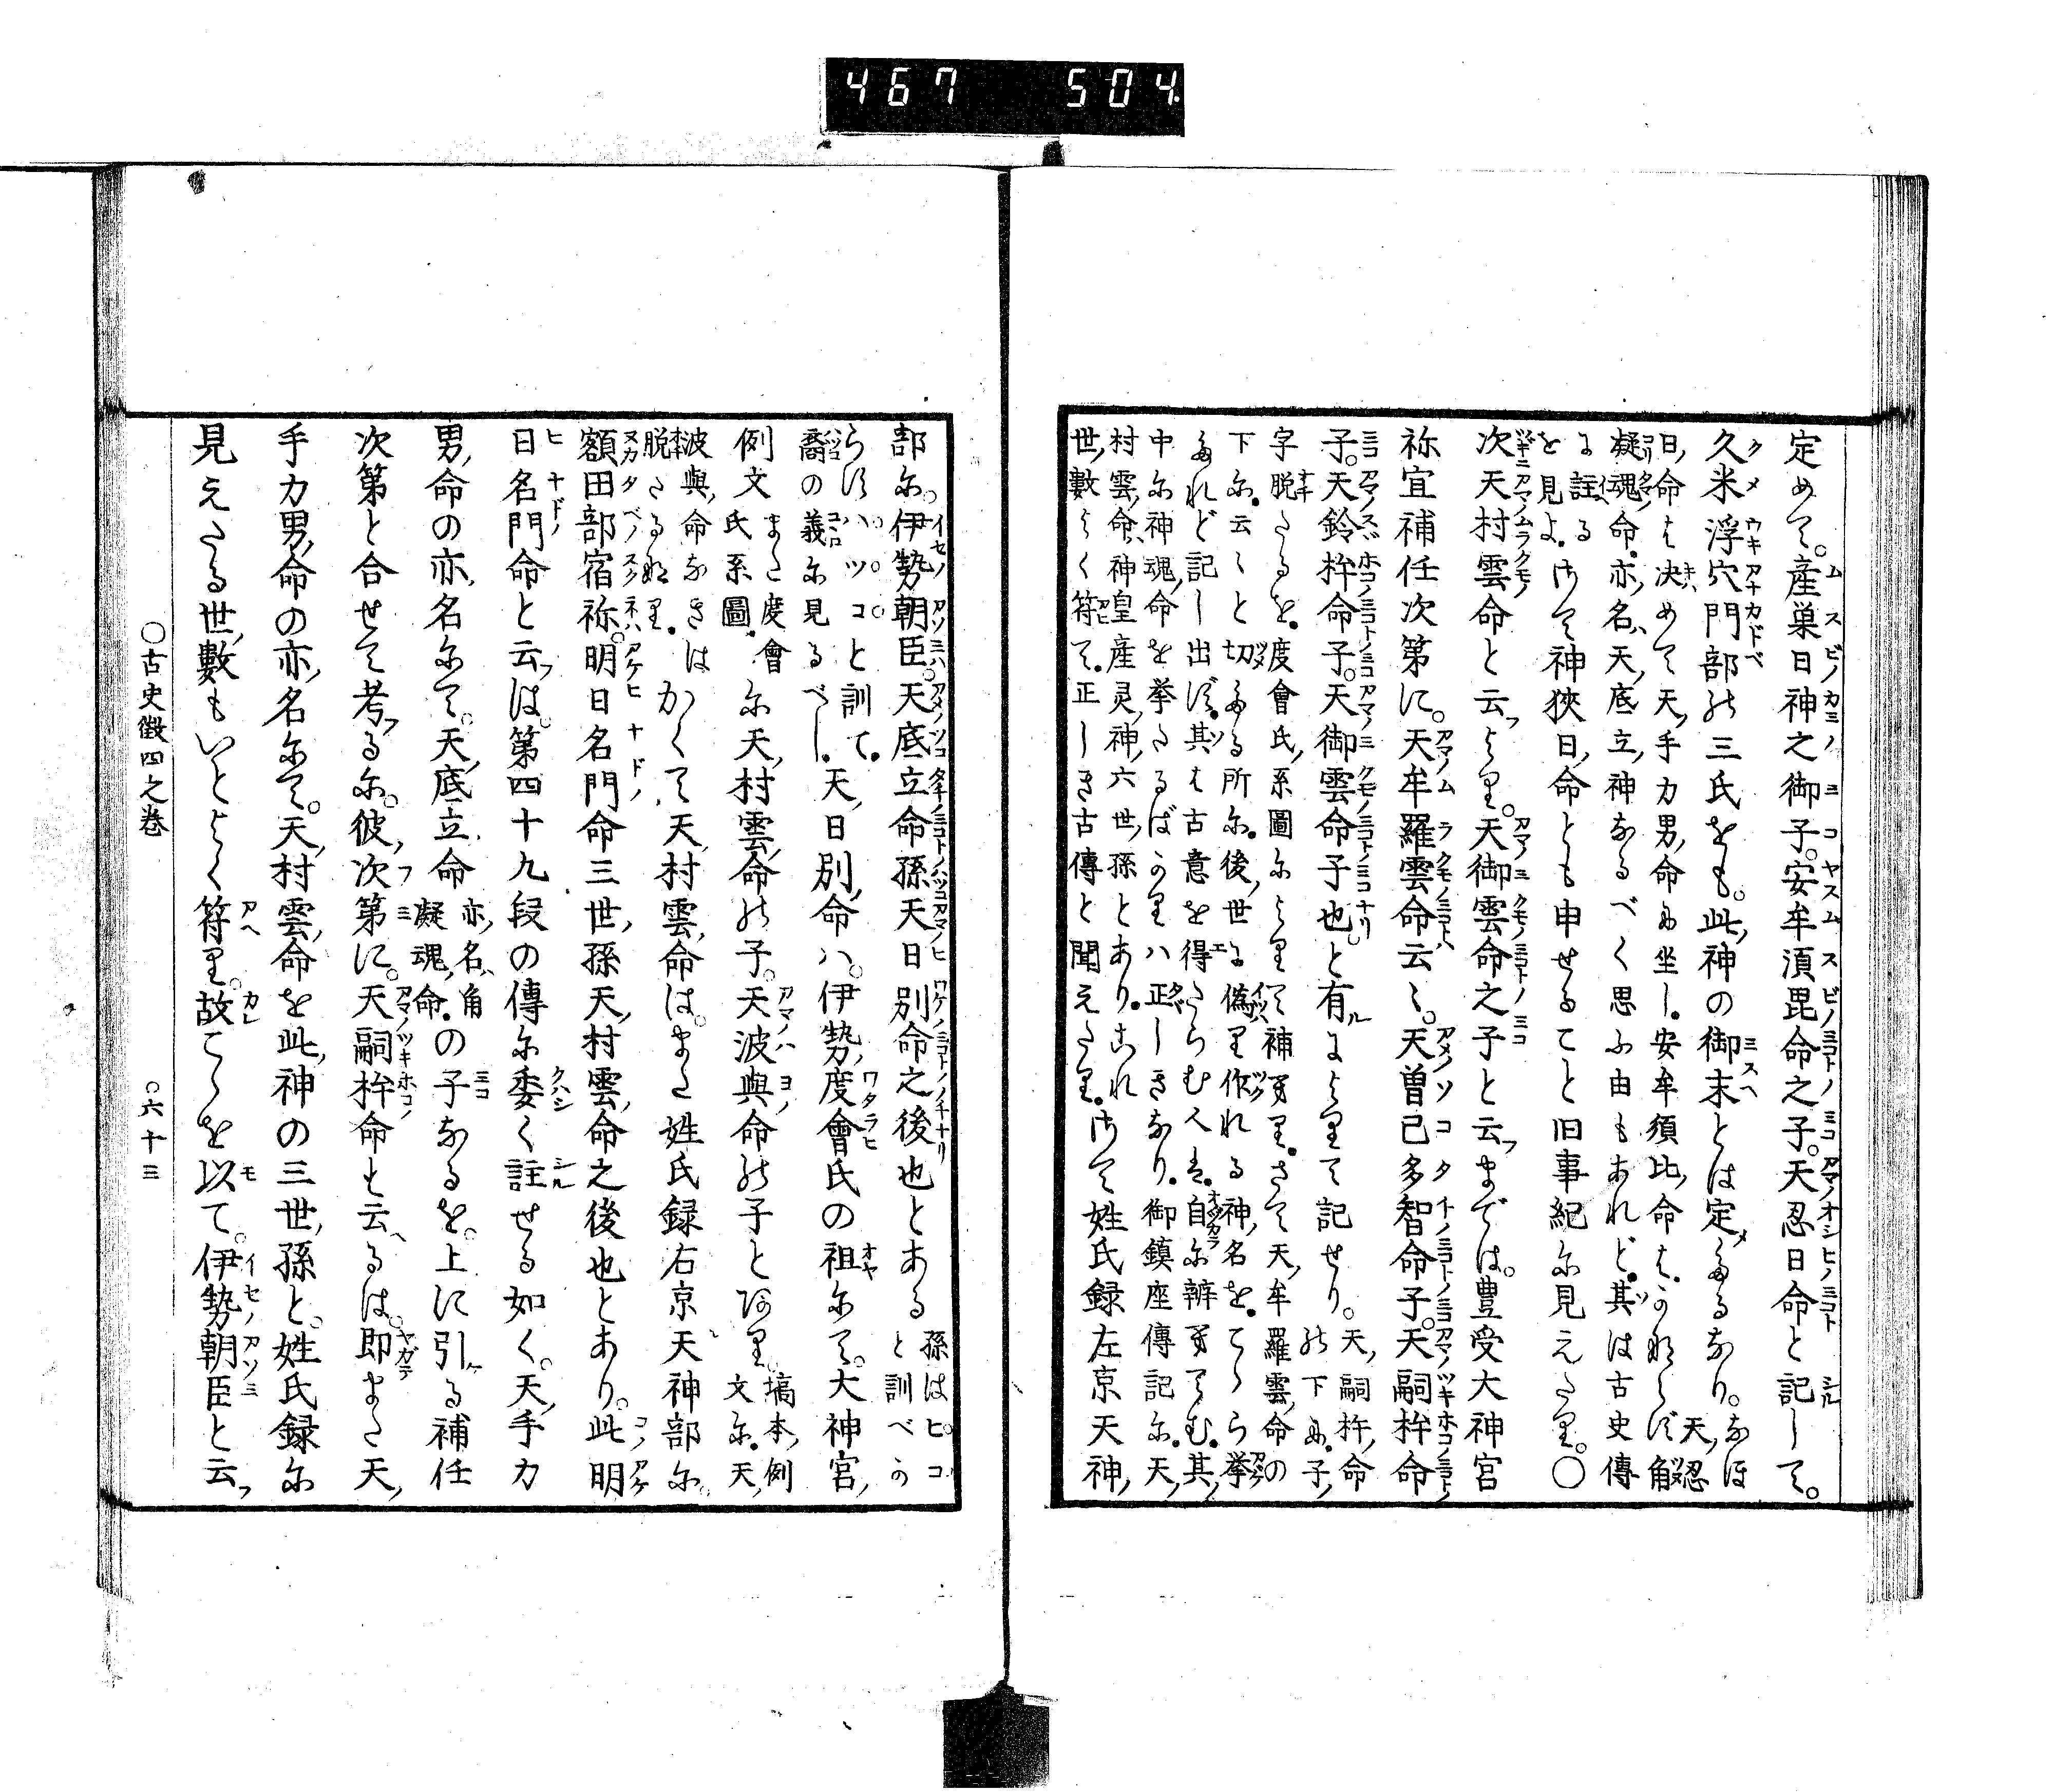 467 504
定めて。産巣日神之御子。安牟湏毘命之子。天忍日命と記して。
久米浮穴門部の三氏をも。此神の御末とは定めたるなり。なほ天忍
日命は決めて天手力男命に坐し。安牟須比命は。かならず角
凝魂命。亦名天底立神なるべく思ふ由もあれど。其は古史傳
に註るを見よ。さて神狹日命とも申せること旧事紀に見えたり。〇
次天村雲命と云より。天御雲命之子と云までは。豊受大神宮
祢宜補任次第に。天牟羅雲命云々。天曽己多智命子。天嗣桙命
子。天鈴桙命子。天御雲命子也。と有るによりて記せり。天嗣桙命の下に。子
字脱たるを。度會氏系圖によりて補へり。さて天牟羅雲命の
下に。云々と切たる所に。後世に偽り作れる神名を。こゝら挙
たれど記し出ず。其は古意を得たらむ人は。自に辨へてむ。其
中に神魂命を挙たるばかりハ正しきなり。御鎮座傳記に。天
村雲命。神皇産灵神六世孫とあり。これ
世數よく符て。正しき古傳と聞えたり。さて姓氏録左京天神
部に。伊勢朝臣。天底立命孫天日別命之後也とある孫はヒコと訓べか
らず。ハツコと訓て。
裔の義に見るべし。天日別命ハ。伊勢度會氏の祖にて。大神宮
例文また度會氏系圖。に天村雲命の子。天波與命の子と阿り。搞本例文に。天
波與命なきは
脱たるなり。かくて天村雲命は。また姓氏録右京天神部に。
額田部宿祢。明日名門命三世孫天村雲命之後也とあり。此明
日名門命と云は。第四十九段の傳に委く註せる如く。天手力
男命の亦名にて。天底立命亦名角凝魂命。の子なるを。上に引る補任
次第と合せて考るに。彼次第に。天嗣桙命と云るは。即また天
手力男命の亦名にて。天村雲命を此神の三世孫と。姓氏録に
見えたる世數もいとよく符り。故こゝを以て。伊勢朝臣と云
〇古史徴四之巻 〇六十三